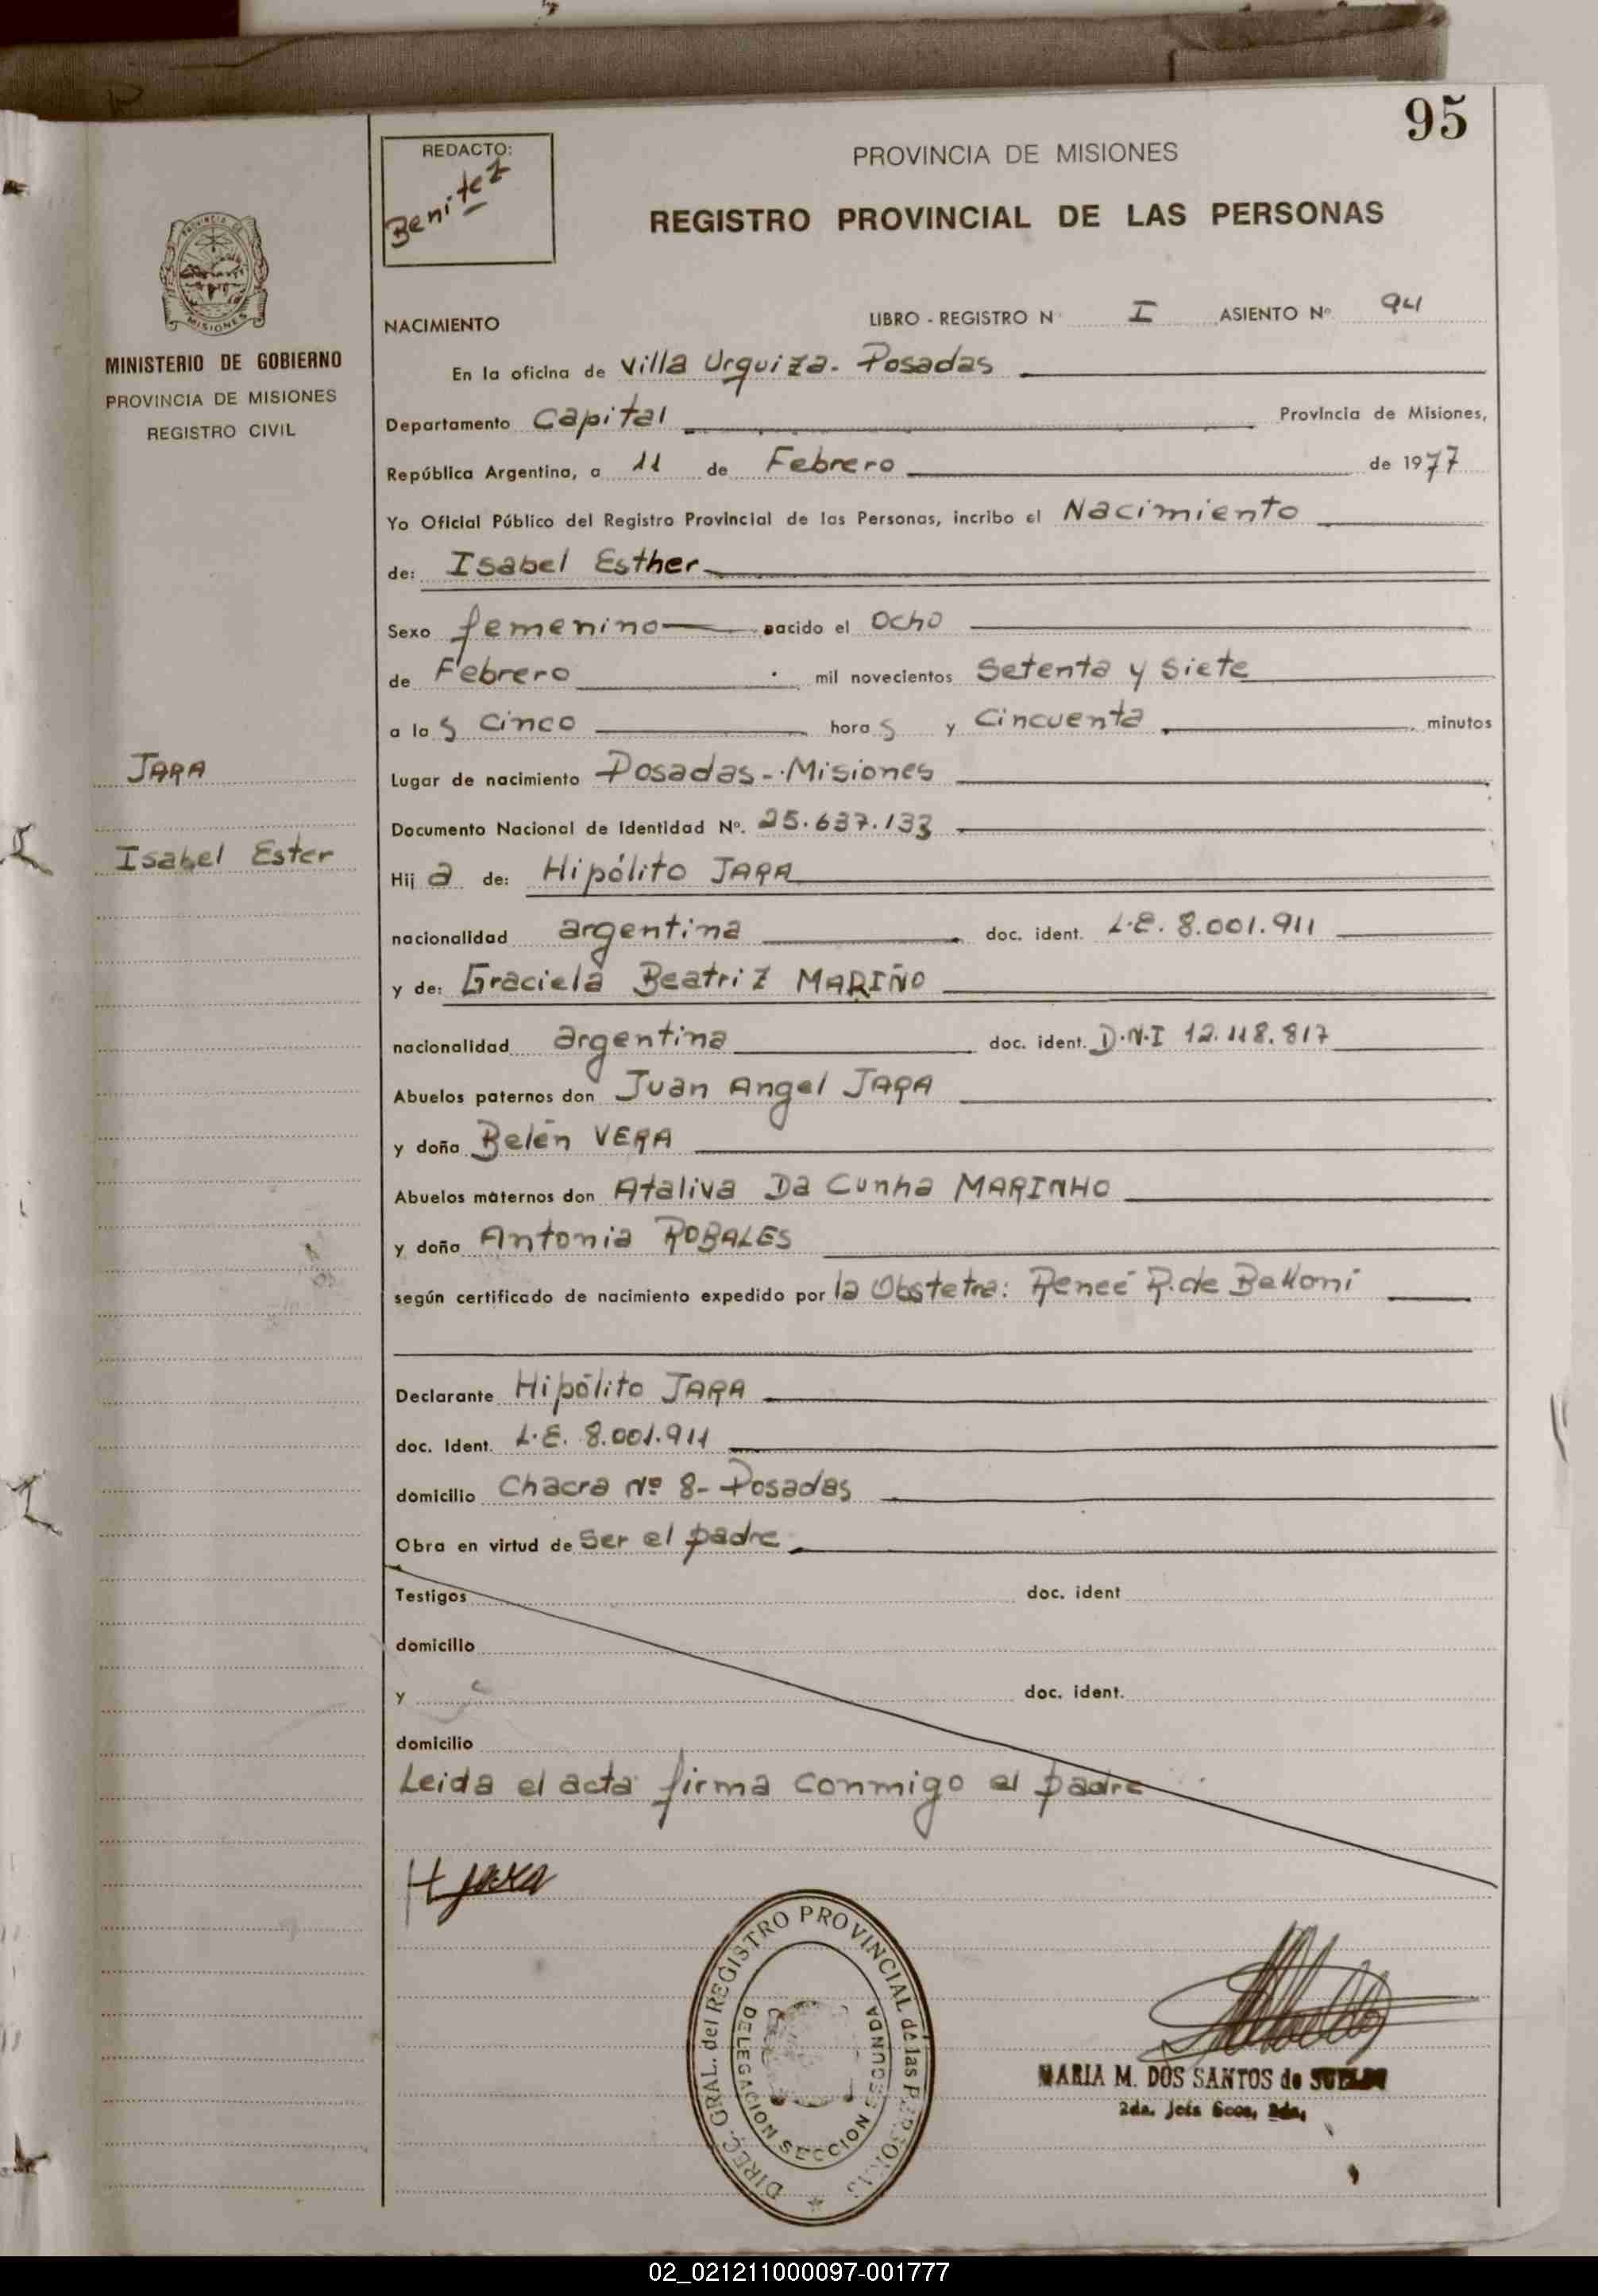 95
REDACTO:
Benitez
PROVINCIA DE MISIONES
REGISTRO PROVINCIAL DE LAS PERSONAS
PROVINCIA DE
MISIONES
MINISTERIO DE GOBIERNO
PROVINCIA DE MISIONES
REGISTRO CIVIL
JARA
Isabel Ester
NACIMIENTO LIBRO - REGISTRO N I ASIENTO Nº 94
En la oficina de Villa Urquiza - Posadas
Departamento Capital Provincia de Misiones,
República Argentina, a 11 de Febrero de 1977
Yo Oficial Público del Registro Provincial de las Personas, incribo el Nacimiento
de: Isabel Esther
Sexo femenino nacido el Ocho
de Febrero mil novecientos Setenta y Siete
a las cinco horas y Cincuenta minutos
Lugar de nacimiento Posadas - Misiones
Documento Nacional de Identidad Nº. 25.637.133
Hija de: Hipólito JARA
nacionalidad argentina doc. ident. L.E. 8.001.911
y de: Graciela Beatriz MARIÑO
nacionalidad argentina doc. ident. D.N.I 12.118.817
Abuelos paternos don Juan Angel JARA
y doña Belén VERA
Abuelos maternos don Ataliva Da Cunha MARINHO
y doña Antonia ROBALES
según certificado de nacimiento expedido por la Obstetra: Reneé R. de
Declarante Hipólito JARA
doc. Ident. L.E. 8.001.911
domicilio Chacra Nº 8 - Posadas
Obra en virtud de Ser el padre
Testigos doc. ident
domicilio
y doc. ident.
domicilio
Leida el acta firma conmigo el padre
H Jara
DIREC. GRAL. del REGISTRO PROVINCIAL de las PERSONAS
DELEGACION SECCION SEGUNDA
MARIA M. DOS SANTOS de
2da. Jefa Secc. 2da.
02_021211000097-001777